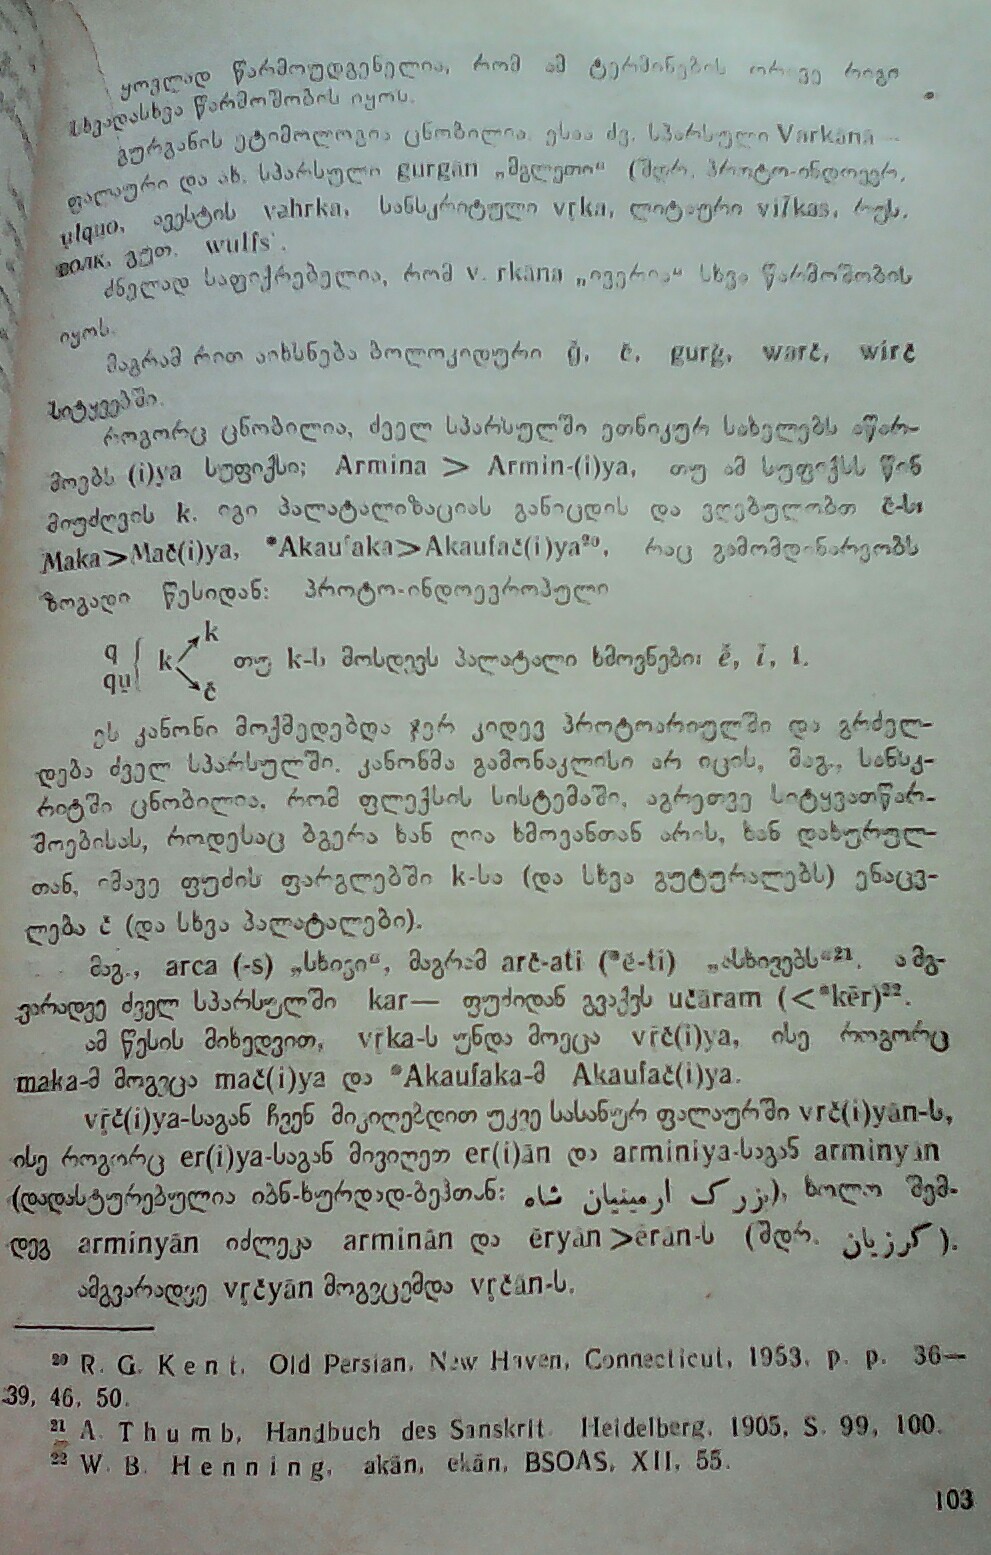 ყოვლად წარმოუდგენელია, რომ ამ ტერმინების ორივე რიგი
სხვადასხვა წარმოშობის იყოს.
გურგანის ეტიმოლოგია ცნობილია. ესაა ძვ. სპარსული Varkana —
ფალაური და ახ. სპარსული gurgān „მგლეთი“ (შდრ. პროტო-ინდოევრ.
u̯lquo, ავესტის vahrka, სანსკრიტული vṛka, ლიტაური vil̃kas, რუს.
волк, გუთ. wulfs'.
ძნელად საფიქრებელია, რომ v. rkāna „ივერია“ სხვა წარმოშობის
იყოს.
მაგრამ რით აიხსნება ბოლოკიდური ğ, č, gurğ, warč, wirč
სიტყვებში.
როგორც ცნობილია, ძველ სპარსულში ეთნიკურ სახელებს აწარ-
მოებს (i)ya სუფიქსი; Armina > Armin-(i)ya, თუ ამ სუფიქსს წინ
მიუძღვის k. იგი პალატალიზაციას განიცდის და ვღებულობთ č-ს:
Maka>Mač(i)ya, *Akaufaka>Akaufač(i)ya²⁰, რაც გამომდინარეობს
ზოგადი წესიდან: პროტო-ინდოევროპული
q k
k თუ k-ს მოსდევს პალატალი ხმოვნები: ĕ, ĭ, i.
qu̯ č
ეს კანონი მოქმედებდა ჯერ კიდევ პროტოარიულში და გრძელ-
დება ძველ სპარსულში. კანონმა გამონაკლისი არ იცის, მაგ., სანსკ-
რიტში ცნობილია, რომ ფლექსის სისტემაში, აგრეთვე სიტყვათწარ-
მოებისას, როდესაც ბგერა ხან ღია ხმოვანთან არის, ხან დახურულ-
თან, იმავე ფუძის ფარგლებში k-სა (და სხვა გუტურალებს) ენაცვ-
ლება č (და სხვა პალატალები).
მაგ., arca (-s) „სხივი“, მაგრამ arč-ati (*ĕ-ti) „ასხივებს“²¹. ამგ-
ვარადვე ძველ სპარსულში kar— ფუძიდან გვაქვს učāram (<*kēr)²².
ამ წესის მიხედვით, vṛka-ს უნდა მოეცა vṛč(i)ya, ისე როგორც
maka-მ მოგვცა mač(i)ya და *Akaufaka-მ Akaufač(i)ya.
vṛč(i)ya-საგან ჩვენ მივიღებდით უკვე სასანურ ფალაურში vrč(i)yān-ს,
ისე როგორც er(i)ya-საგან მივიღეთ er(i)ān და arminiya-საგან arminyān
(დადასტურებულია იბნ-ხურდად-ბეჰთან: بزرگ ارمينيان شاه), ხოლო შემ-
დეგ arminyān იძლევა arminān და ēryān>ērān-ს (შდრ. كرزيان).
ამგვარადვე vṛčyān მოგვცემდა vṛčān-ს.
²⁰ R. G. Kent, Old Persian, New Haven, Connecticut, 1953, p. p. 36—
39, 46, 50.
²¹ A. Thumb, Handbuch des Sanskrit. Heidelberg, 1905, S. 99, 100.
²² W. B. Henning, akān, ekān, BSOAS, XII, 55.
103